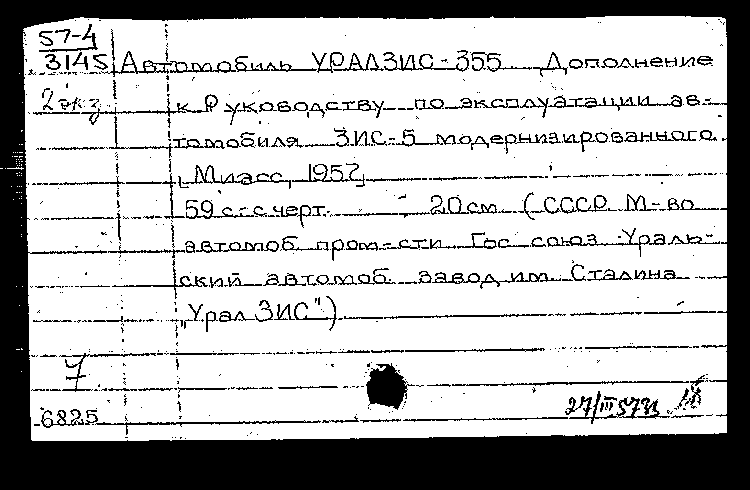 57-4
3145
Автомобиль УРАЛЗИС-355 Дополнение
2 экз
к Руководству по эксплуатации ав-
томобиля ЗИС-5 модернизированного.
[Миасс, 1957]
59 с. с черт. 20 см. (СССР М-во
автомоб. пром-сти Гос союз Ураль-
ский автомоб. завод им. Сталина
„Урал ЗИС")
7
6825
27/III 57